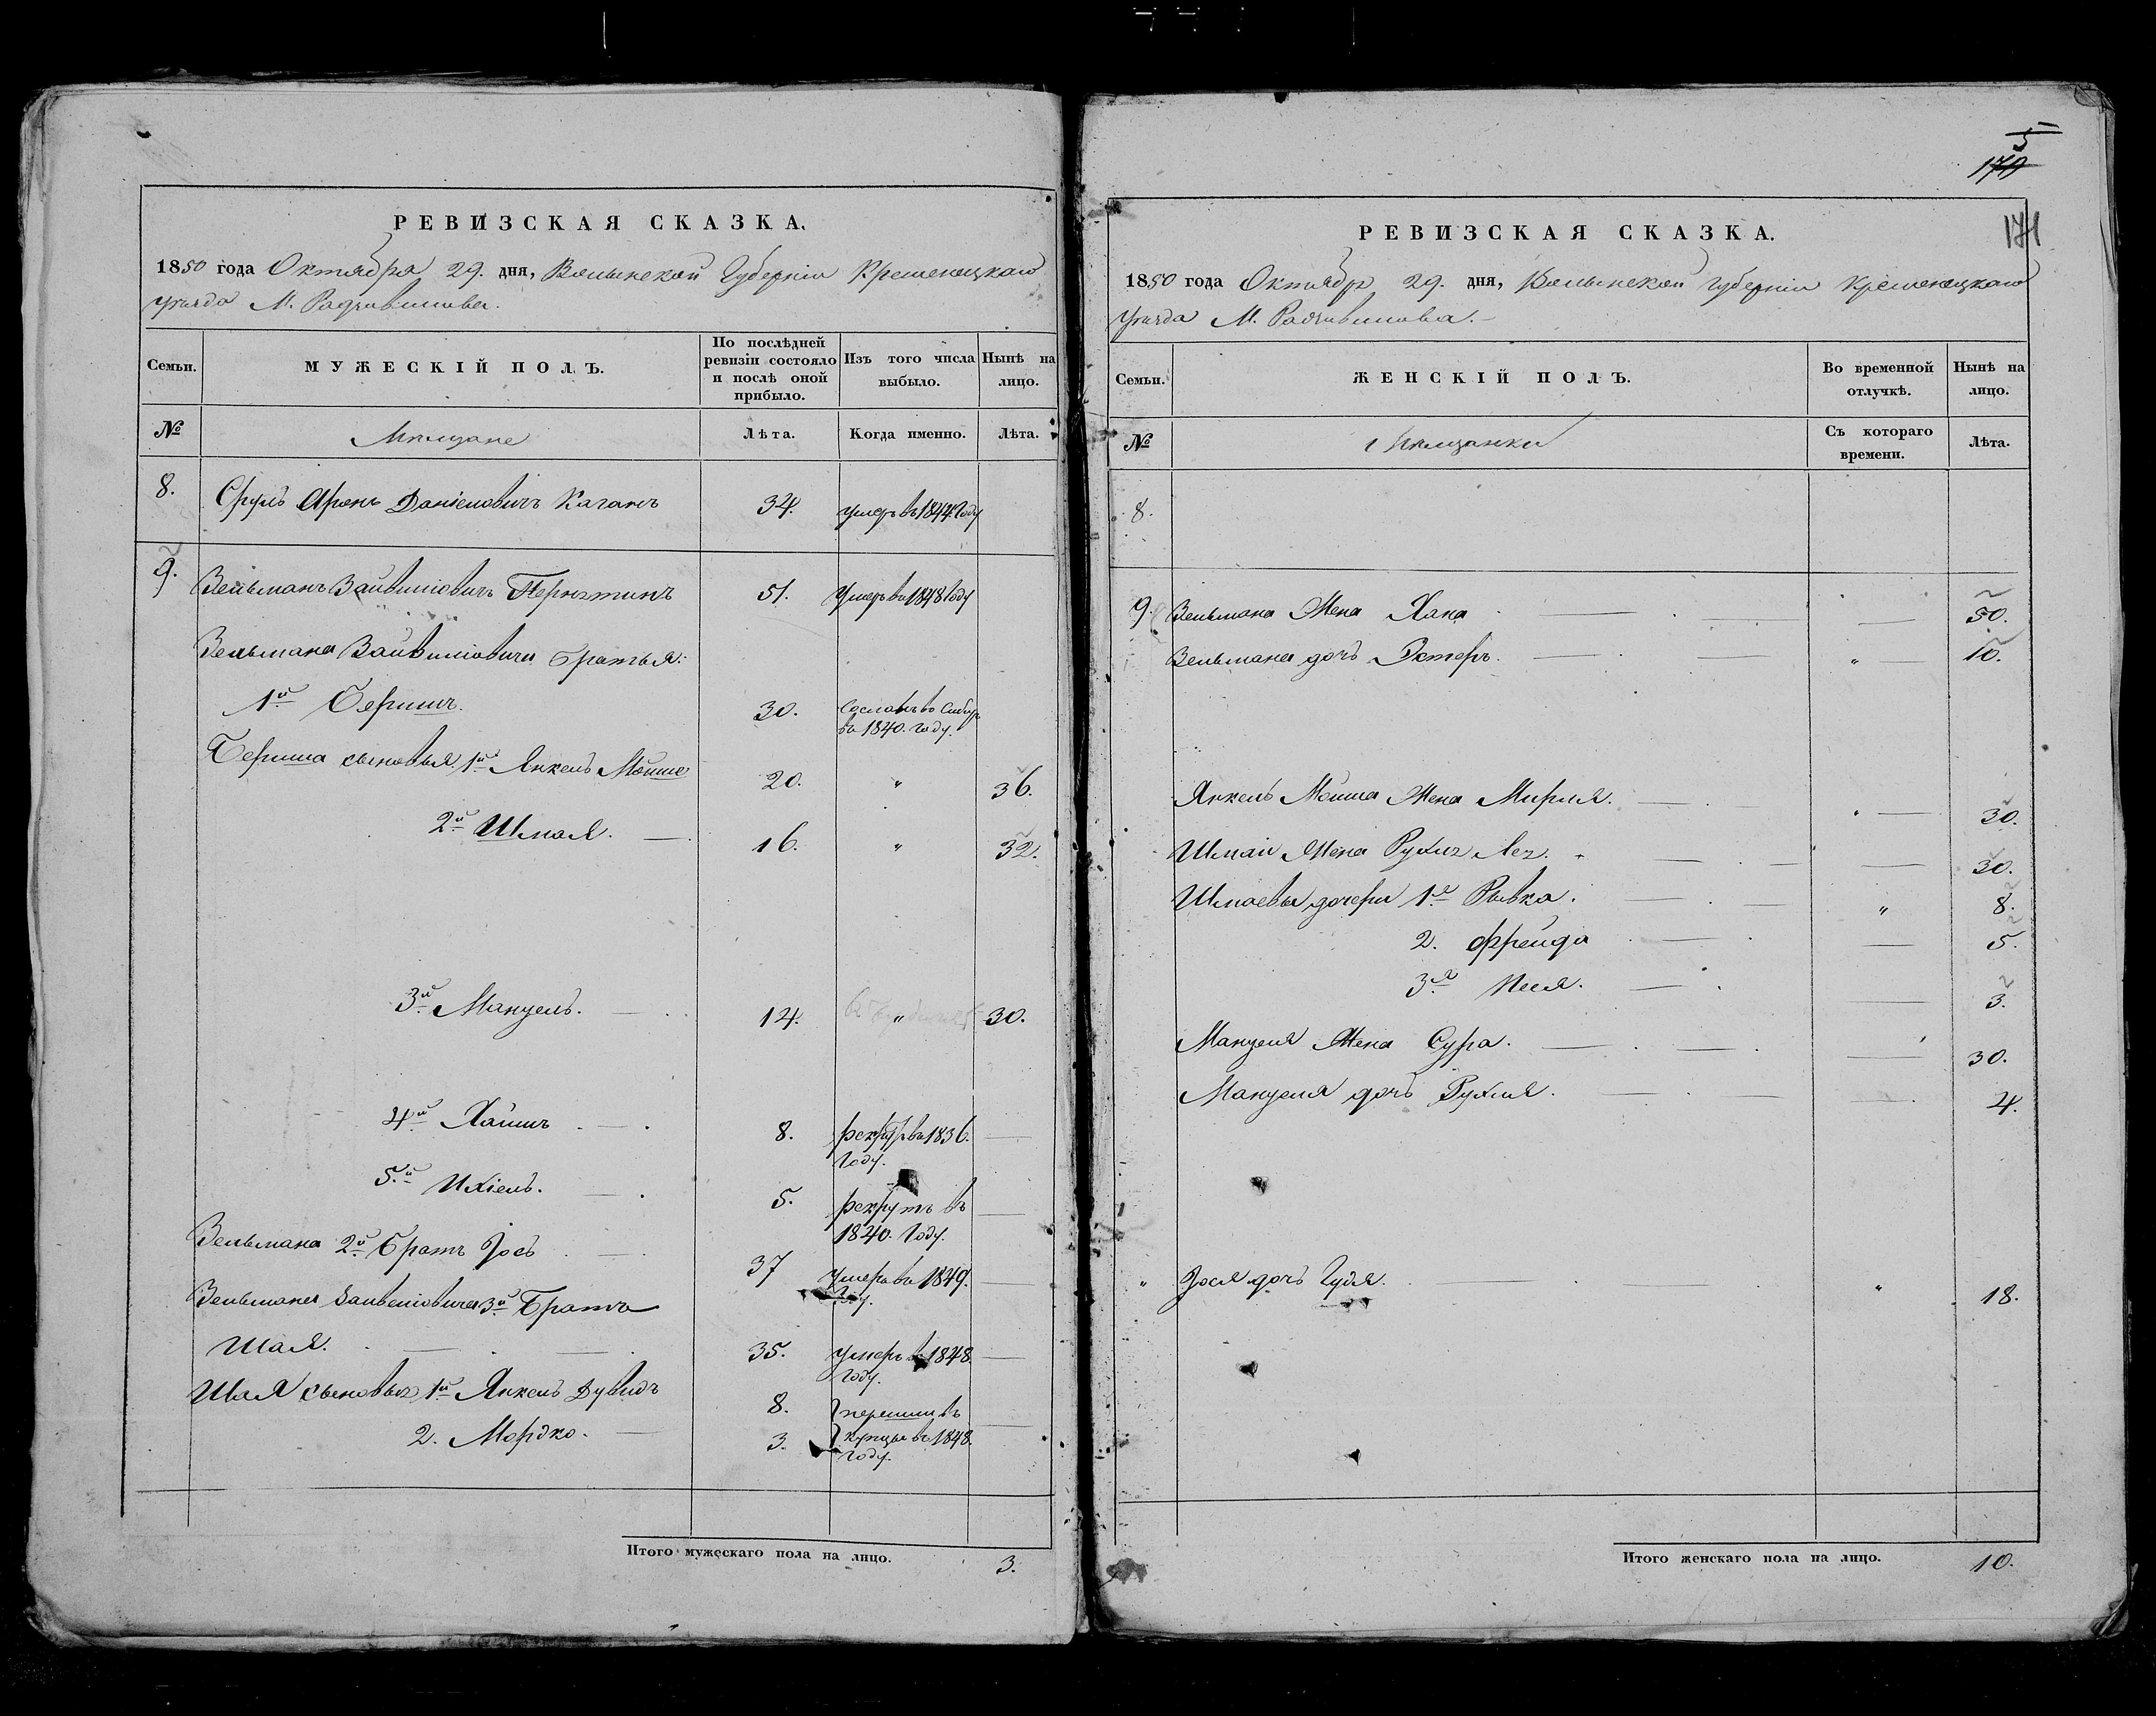 РЕВИЗСКАЯ СКАЗКА.
1850 года Октября 29. дня, Волынской Губерніи Кременецкаго
уѣзда М. Радзивилова.
Семьи.
МУЖЕСКІЙ ПОЛЪ.
По послѣдней ревизіи состояло и послѣ оной прибыло.
Изъ того числа выбыло.
Нынѣ на лицо.
№
Мѣщане
Лѣта.
Когда именно.
Лѣта.
8. Сруль Аронъ Даніеловичъ Каганъ 34. умеръ въ 1844 Году
9. Вельманъ Зайвиліовичъ 51. Умеръ въ 1848 Году
Вельмана Зайвиліовича Братья:
1й Беришъ. 30. Сосланъ во Сибирь
въ 1840. Году.
Бериша сыновья 1й Янкель Мошко 20. " 36.
2й Шмая. 16. " 32.
3й Манцель. 14. " 30.
4й Хаимъ 8. рекрутъ въ 1836.
Году.
5й Ихіель. 5. рекрутъ въ
1840. Году.
Вельмана 2й Братъ Іось 37 Умеръ въ 1849.
Вельмана Зайвеліовича 3й Братъ
Шая. 35. Умеръ въ 1848.
Году.
Шая сыновья 1й Янкель Дувидъ 8. перешли въ
2. Мордко. 3. купцы въ 1848.
Году.
Итого мужескаго пола на лицо. 3.
5
170
171
РЕВИЗСКАЯ СКАЗКА.
1850 года Октября 29. дня, Волынской Губерніи Кременецкаго
Уѣзда М. Радзивилова.
Семьи.
ЖЕНСКІЙ ПОЛЪ.
Во временной отлучкѣ.
Нынѣ на лицо.
№
Мѣщанки
Съ котораго времени.
Лѣта.
8.
9. Вельмана Жена Хана 50.
Вельмана дочь Эстеръ. " 10.
Янкель Мошка Жена Мирля. " 30.
Шмаи Жена Рухля Лея. 30.
Шмаевы дочери 1я Рывка. " 8.
2. Фрейда 5.
3я Песя. 3.
Манцеля Жена Сура. 30.
Манцеля дочь Рухля. 4.
" Іося дочь Гудя. " 18.
Итого женскаго пола на лицо. 10.